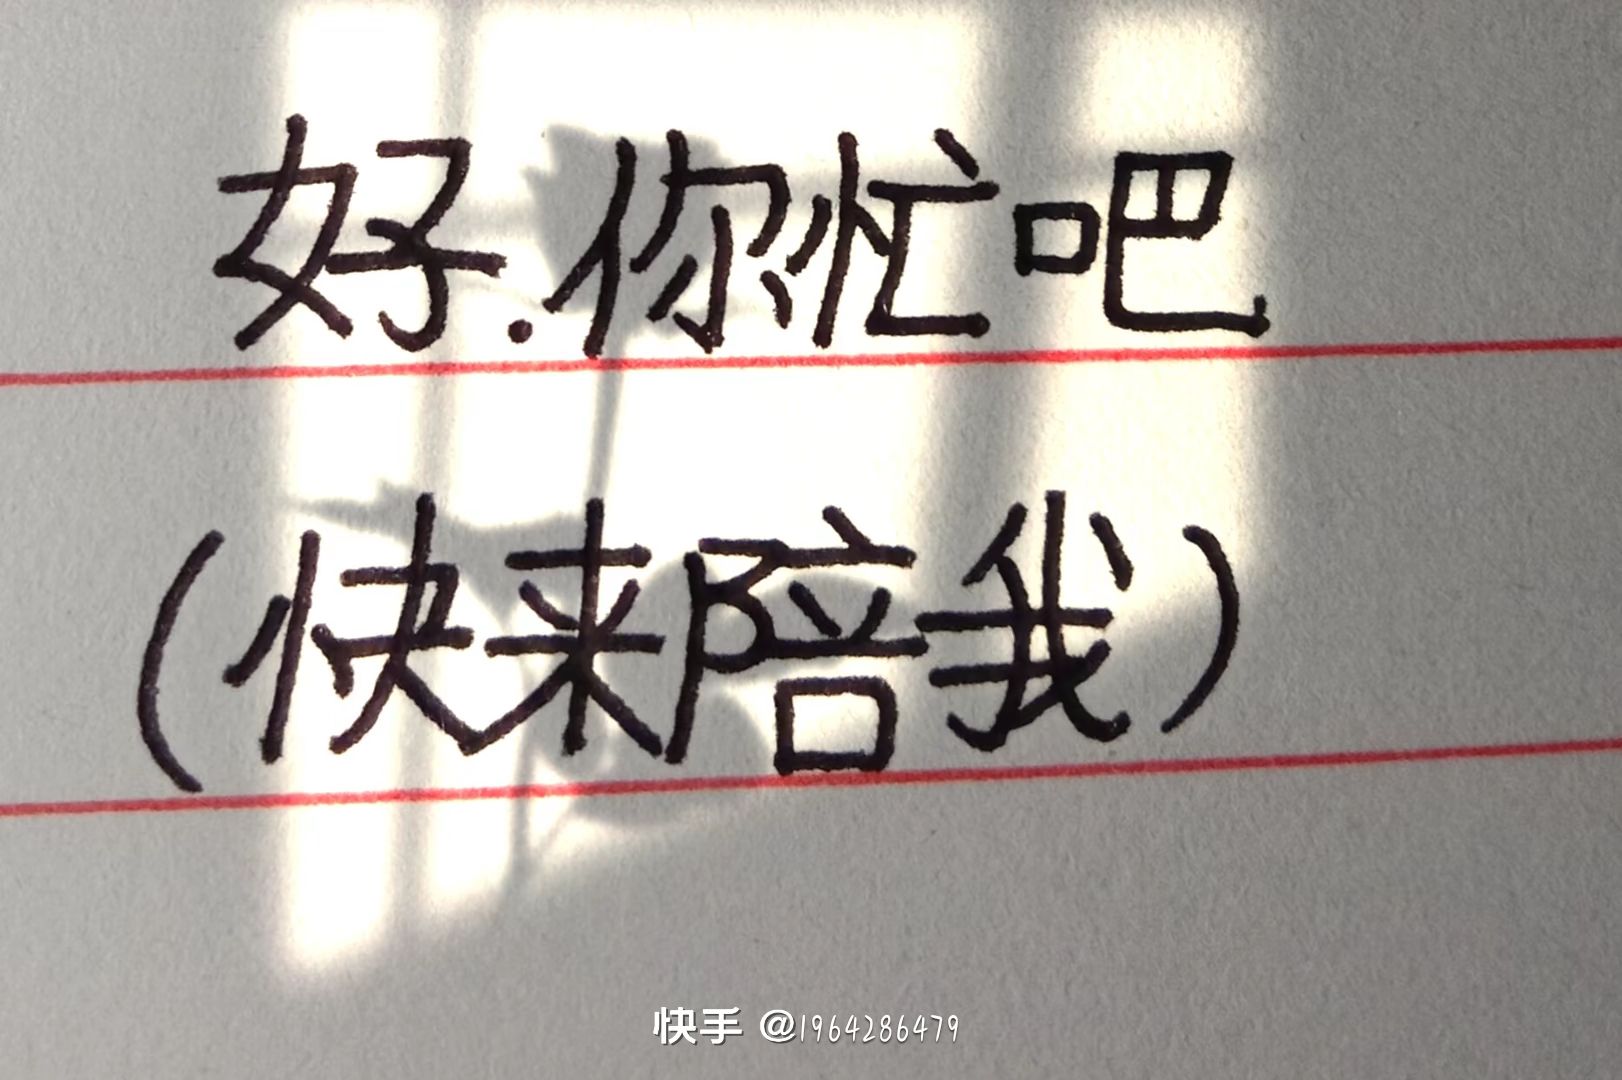 好.你忙吧
(快来陪我)
快手 @1964286479